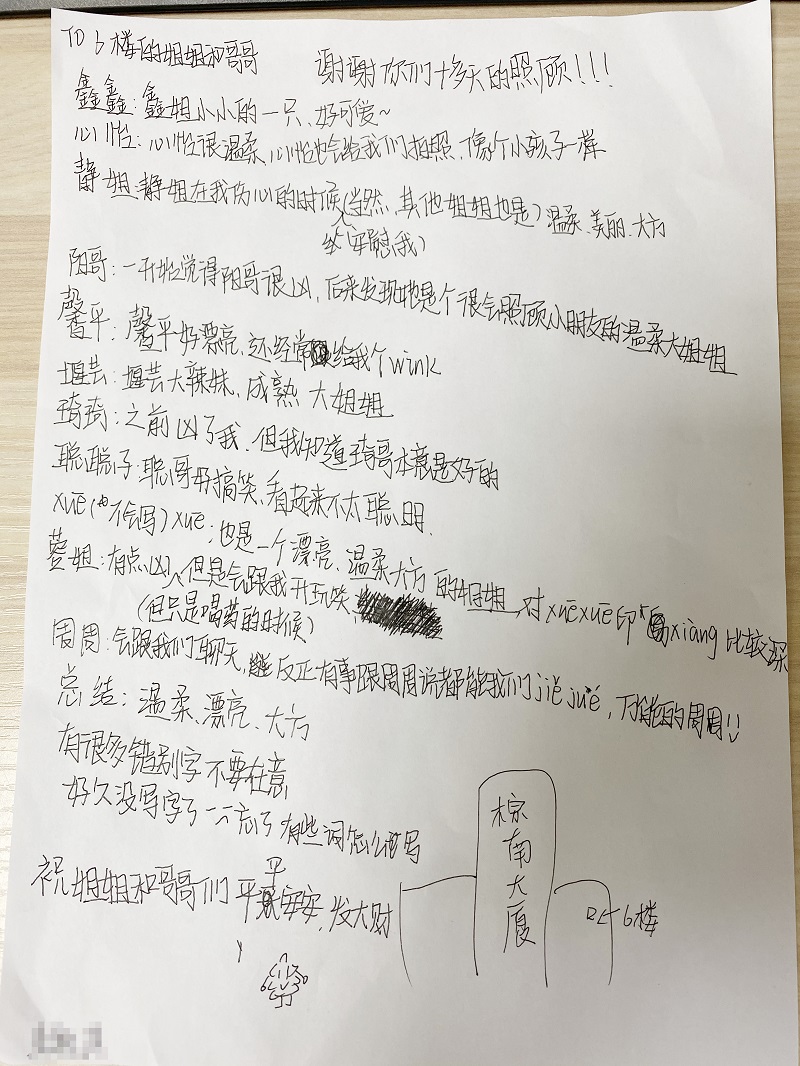 TO 6楼的姐姐和哥哥
谢谢你们十多天的照顾!!!
鑫鑫:鑫姐小小的一只、好可爱~
心怡:心怡很温柔,心怡也会给我们拍照,像个小孩子一样
静姐:静姐在我伤心的时候(当然,其他姐姐也是)温柔、美丽、大方
安慰我)
阳哥:一开始觉得阳哥很凶,后来发现她是个很会照顾小朋友的温柔大姐姐
馨平:馨平好漂亮,还经常给我个wink
堰芸:堰芸大辣妹,成熟 大姐姐
琦琦:之前凶了我,但我知道琦哥本意是好的
聪聪子:聪哥好搞笑、看起来不太聪明.
xuē(不会写)xuē:也是一个漂亮、温柔大方的姐姐,对xuēxuē印xiàng比较深
蓉姐:有点凶,但是会跟我开玩笑、
(但只是喝药的时候)
周周:会跟我们聊天,反正有事跟周周说都能我们jiě jué,万能的周周!!
总结:温柔、漂亮、大方
有很多错别字不要在意
好久没写字了一不忘了有些词怎么写
祝姐姐和哥哥们平平安安,发大财
棕南大厦
6楼